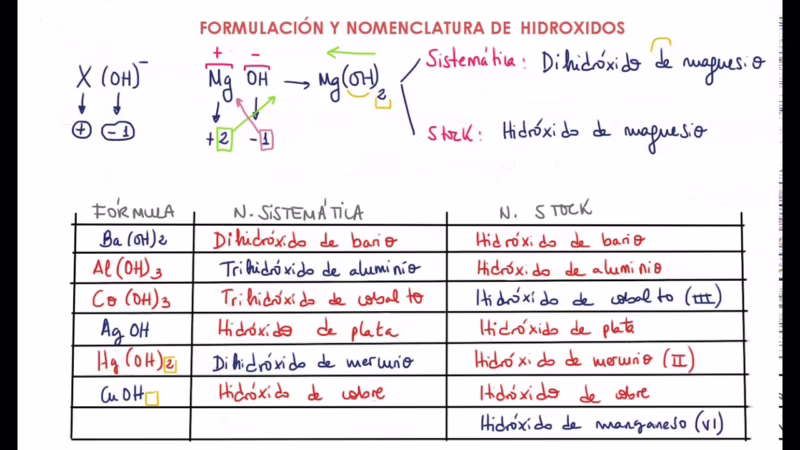 FORMULACIÓN Y NOMENCLATURA DE HIDROXIDOS
X (OH)⁻
+ -1
+ -
Mg OH → Mg(OH)2
+2 -1
Sistemática: Dihidróxido de magnesio
Stock: Hidróxido de magnesio
FÓRMULA N. SISTEMÁTICA N. STOCK
Ba(OH)2 Dihidróxido de bario Hidróxido de bario
Al(OH)3 Trihidróxido de aluminio Hidróxido de aluminio
Co(OH)3 Trihidróxido de cobalto Hidróxido de cobalto (III)
AgOH Hidróxido de plata Hidróxido de plata
Hg(OH)2 Dihidróxido de mercurio Hidróxido de mercurio (II)
CuOH Hidróxido de cobre Hidróxido de cobre
Hidróxido de manganeso (VI)